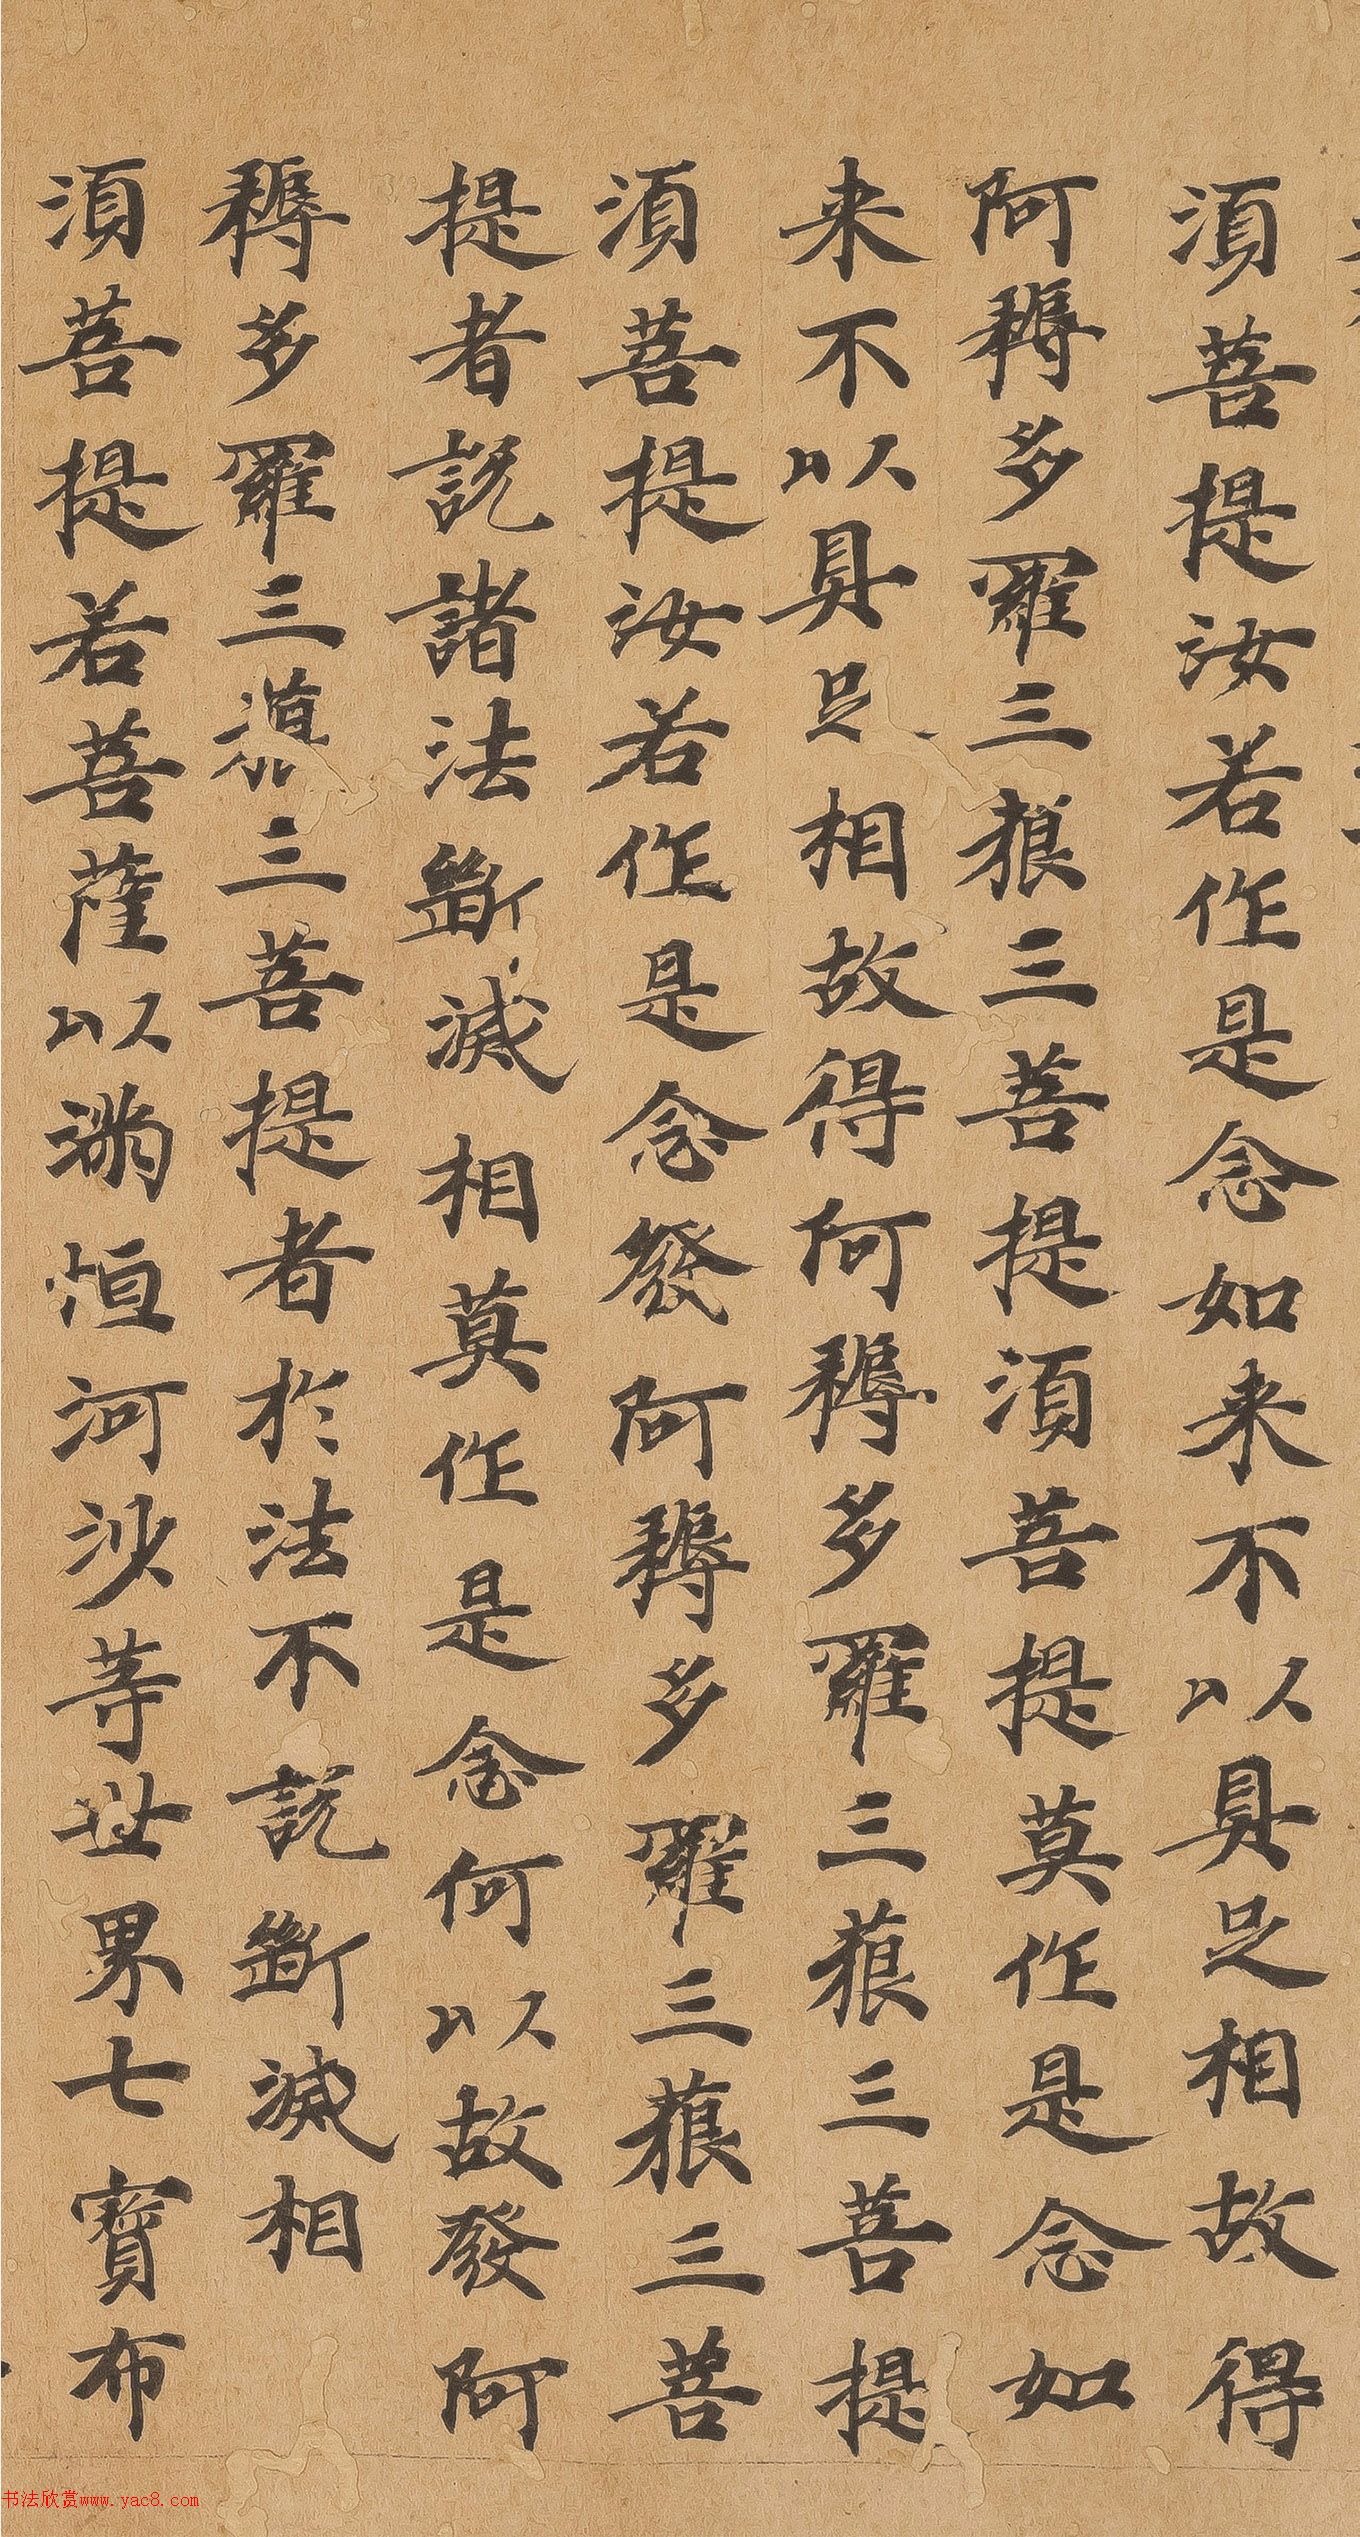 須菩提汝若作是念如来不以具足相故得
阿耨多羅三藐三菩提須菩提莫作是念如
来不以具足相故得何耨多羅三藐三菩提
須菩提汝若作是念發阿耨多羅三藐三菩
提者說諸法斷滅相莫作是念何以故發阿
耨多羅三藐三菩提者於法不說斷滅相
須菩提若菩薩以滿恒河沙等世界七寶布
书法欣赏www.yac8.com